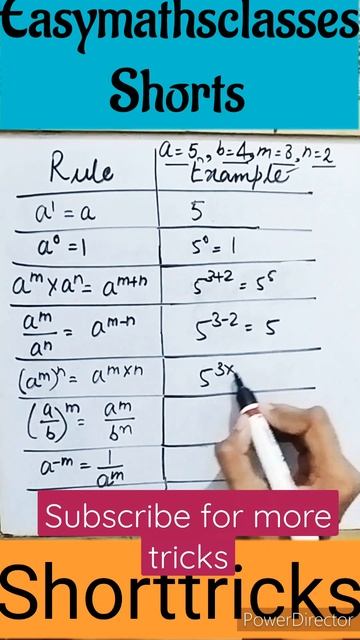 Easymathsclasses
Shorts
a = 5, b = 4, m = 3, n = 2
Rule Example
a¹ = a 5
a⁰ = 1 5⁰ = 1
aᵐ × aⁿ = aᵐ⁺ⁿ 5³⁺² = 5⁵
aᵐ/aⁿ = aᵐ⁻ⁿ 5³⁻² = 5
(aᵐ)ⁿ = aᵐˣⁿ 5³ˣ
(a/b)ᵐ = aᵐ/bⁿ
a⁻ᵐ = 1/aᵐ
Subscribe for more
tricks
Shorttricks
PowerDirector